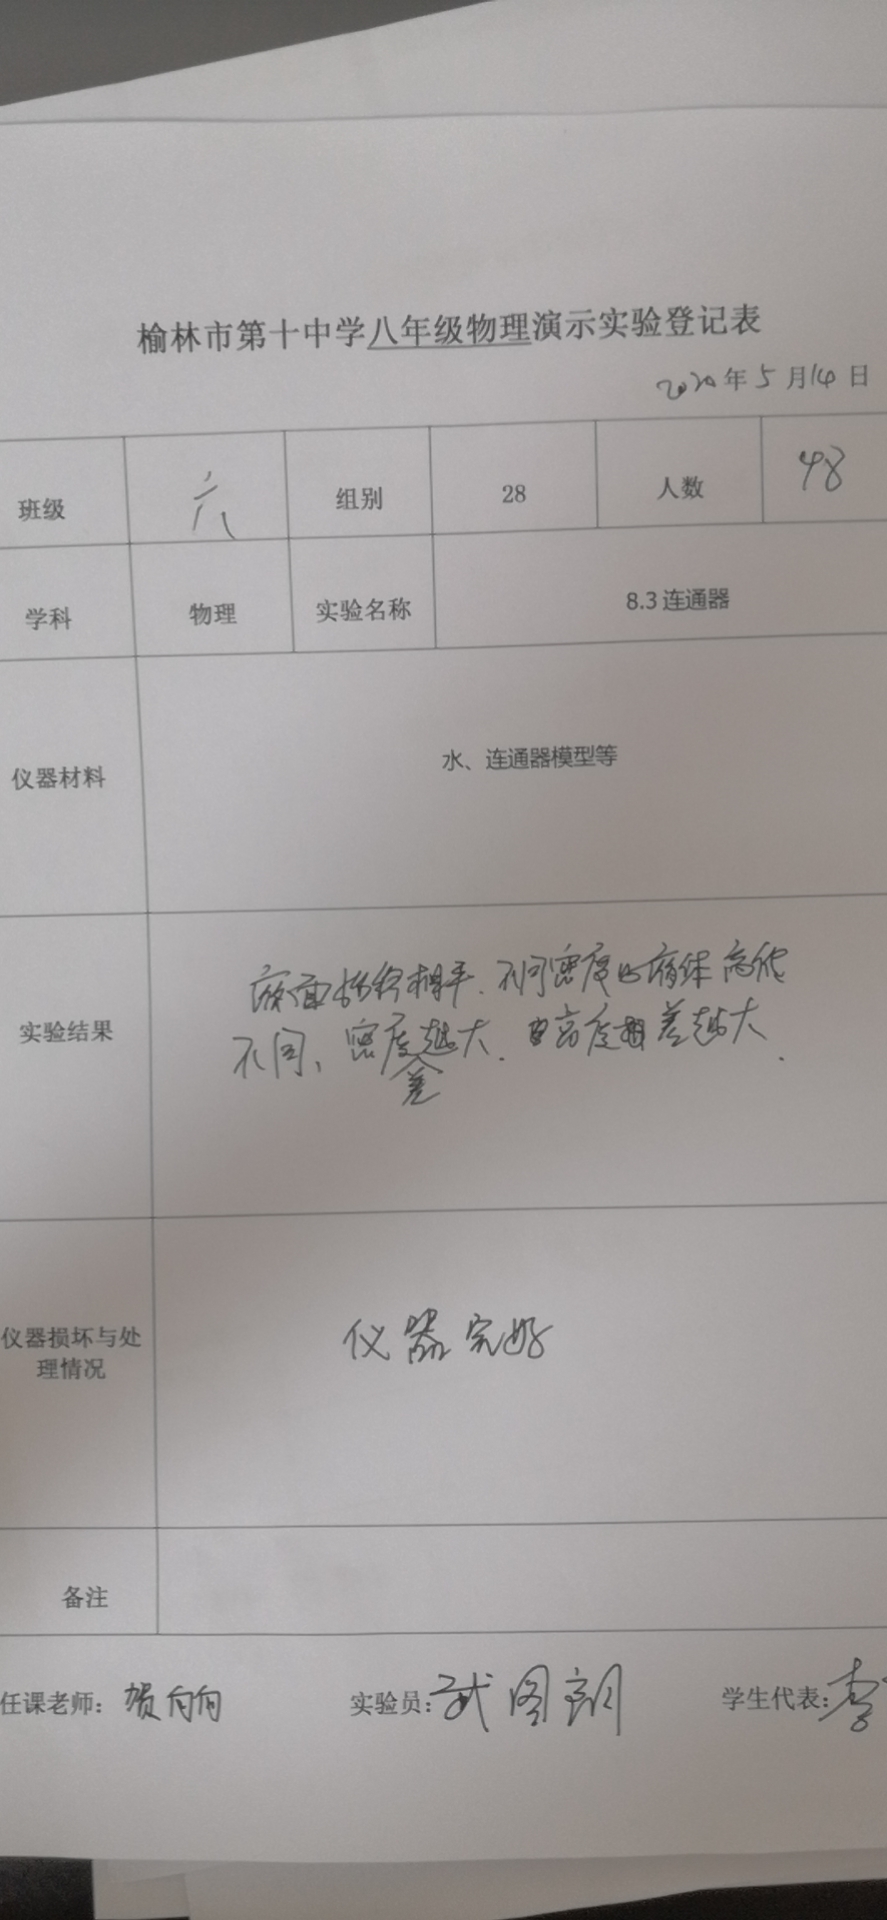 榆林市第十中学八年级物理演示实验登记表
2020年5月14日
班级 六 组别 28 人数 48
学科 物理 实验名称 8.3 连通器
仪器材料 水、连通器模型等
实验结果
液面始终相平.不同密度的液体高低
不同、密度差越大.高度相差越大.
仪器损坏与处
理情况
仪器完好
备注
任课老师：贺 实验员：武图朗 学生代表：李